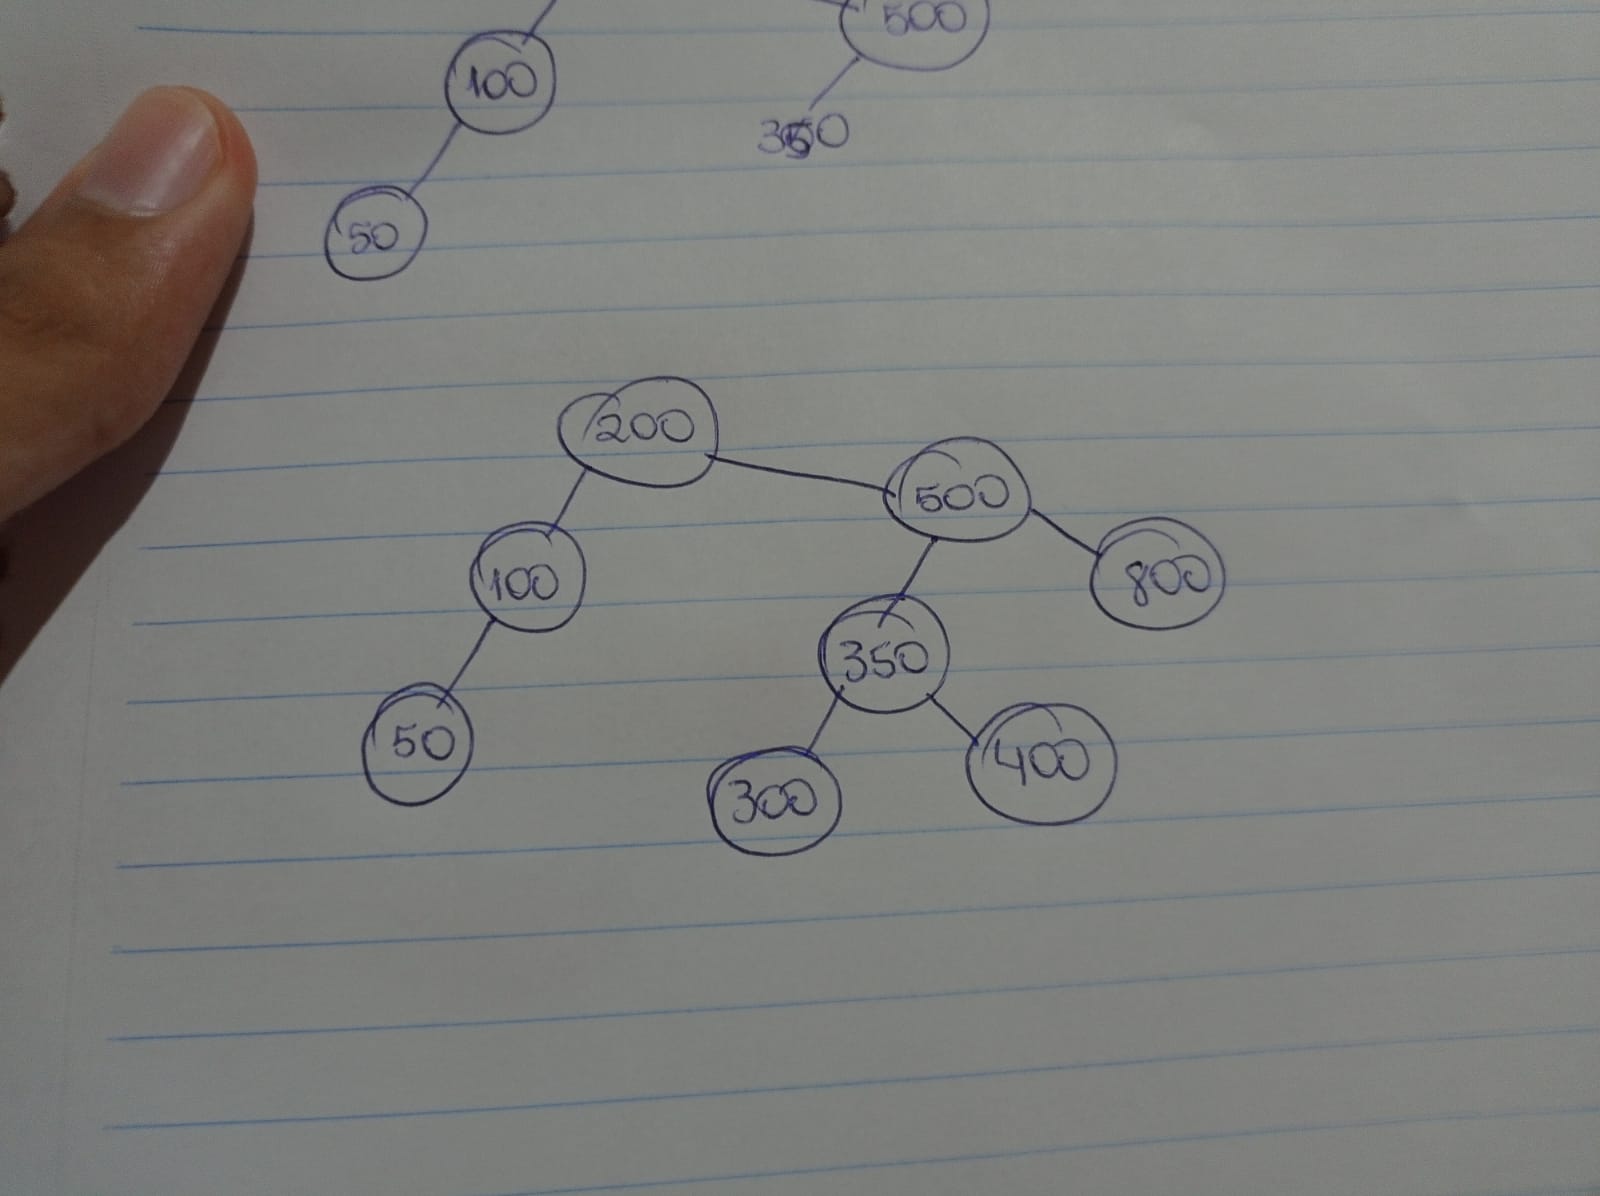 500
100
350
50
200
500
100
800
350
50
400
300